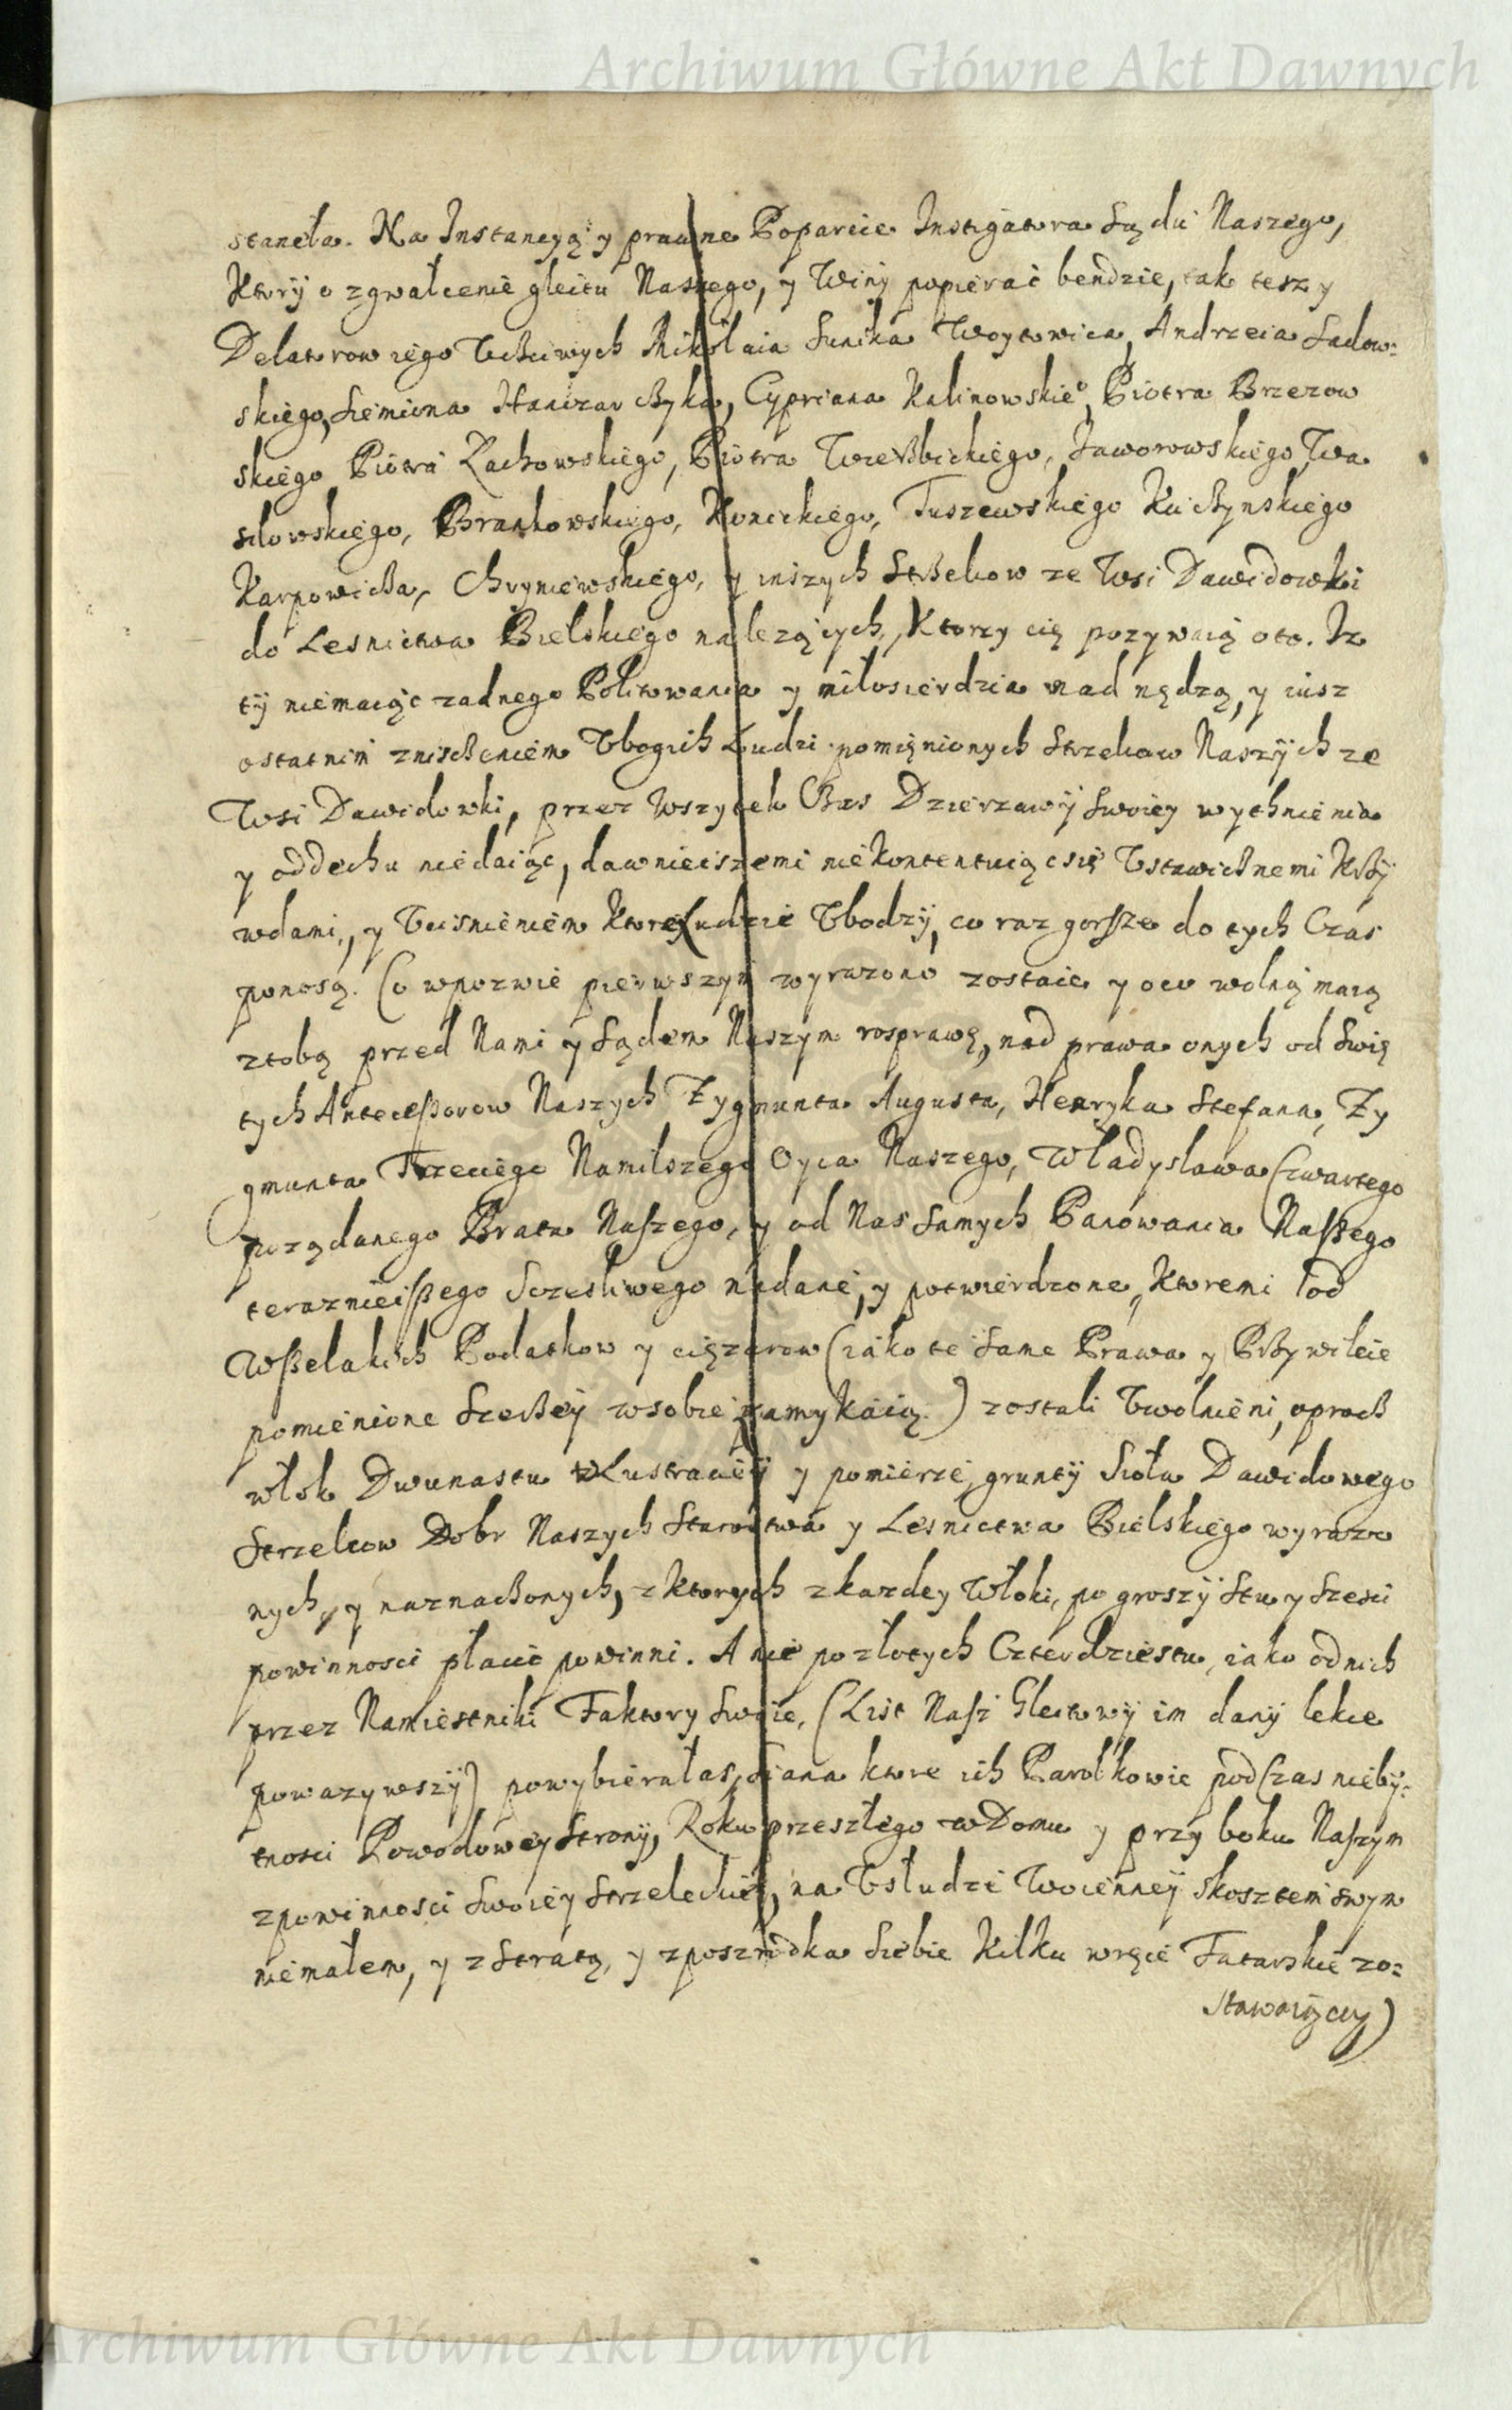 Archiwum Główne Akt Dawnych
staneła. Na Instancyą y prawne Poparcie Instigatora Sądu Naszego,
Ktory o zgwałcenie gleitu Naszego, y Winy popierać bendzie, tak tesz y
Delatorow iego Vcżciwych Mikołaia Woytowica, Andrzeia Sadow-
skiego, Siemiona Cypriana Kalinowskieo, Piotra Brzezow
skiego Piotra Zachowskiego, Piotra Wierßbickiego, Jaworowskiego, Wa
silowskiego, Brankowskiego, Konickiego, Tuszewskiego Kuczynskiego
Karpowicża, Chryniewskiego, y inszych Strzelcow ze Wsi Dawidowki
do Lesnictwa Bielskiego nalezących, Ktorzy cię pozywaią oto. Iz
ty niemaiąc zadnego Politowania y miłosierdzia nad nędzą, y iusz
ostatnim zniscżeniem Vbogich Ludzi pomięnionych Strzelcow Naszych ze
Wsi Dawidowki, przez Wszytek Czas Dzierzawy Swoiey wythnienia
y oddechu niedaiąc, dawnieiszemi niekontentuiąc się Vstawicżnemi Krzy
wdami, y Vcisnieniem Ktore Ludzie Vbodzy, co raz gorsze do tych Czas
ponoszą. Co wpozwie pierwszym wyrazono zostaie y oco wolną maią
ztobą przed Nami y Sądem Naszym rosprawę, nad prawa onych od Swię
tych Anteceßorow Naszych Zygmunta Augusta, Henryka Stefana, Zy
gmunta Trzeciego Namilszego Oyca Naszego, Władysława Czwartego
poządanego Brata Naszego, y od Nas Samych Panowania Naszego
teraznieiszego Szczesliwego nadane, y potwierdzone, Ktoremi od
Wszelakich Podatkow y cięzarow (iako te Same Prawa y Przywileie
pomienione Szerzey wsobie zamykaią) zostali Vwolnieni, oprocz
włok Dwunastu wLustraciey y pomierze, grunty Sioła Dawidowego
Strzelcow Dobr Naszych Starostwa y Lesnictwa Bielskiego wyrazo
nych, y naznaczonych, z Ktorych zkazdey Włoki, po groszy Stu y Szesci
powinnosci płacic powinni. A nie po złotych Czterdziestu, iako od nich
przez Namiestniki Faktory Swoie, (List Nasz Gleitowy im dany lekce
powazywszy) powybierałas, Siana ktore ich Parobkowie podCzas nieby-
tnosci Powodowey Strony, Roku przeszłego wDomu y przy boku Naszym
zpowinnosci Swoiey Strzeleckiey, na Vsłudze Woienney Skosztem swym
niemałem, y z Stratą, y zposzrodka Siebie Kilku wręce Tatarskie zo-
stawaiący)
Archiwum Główne Akt Dawnych